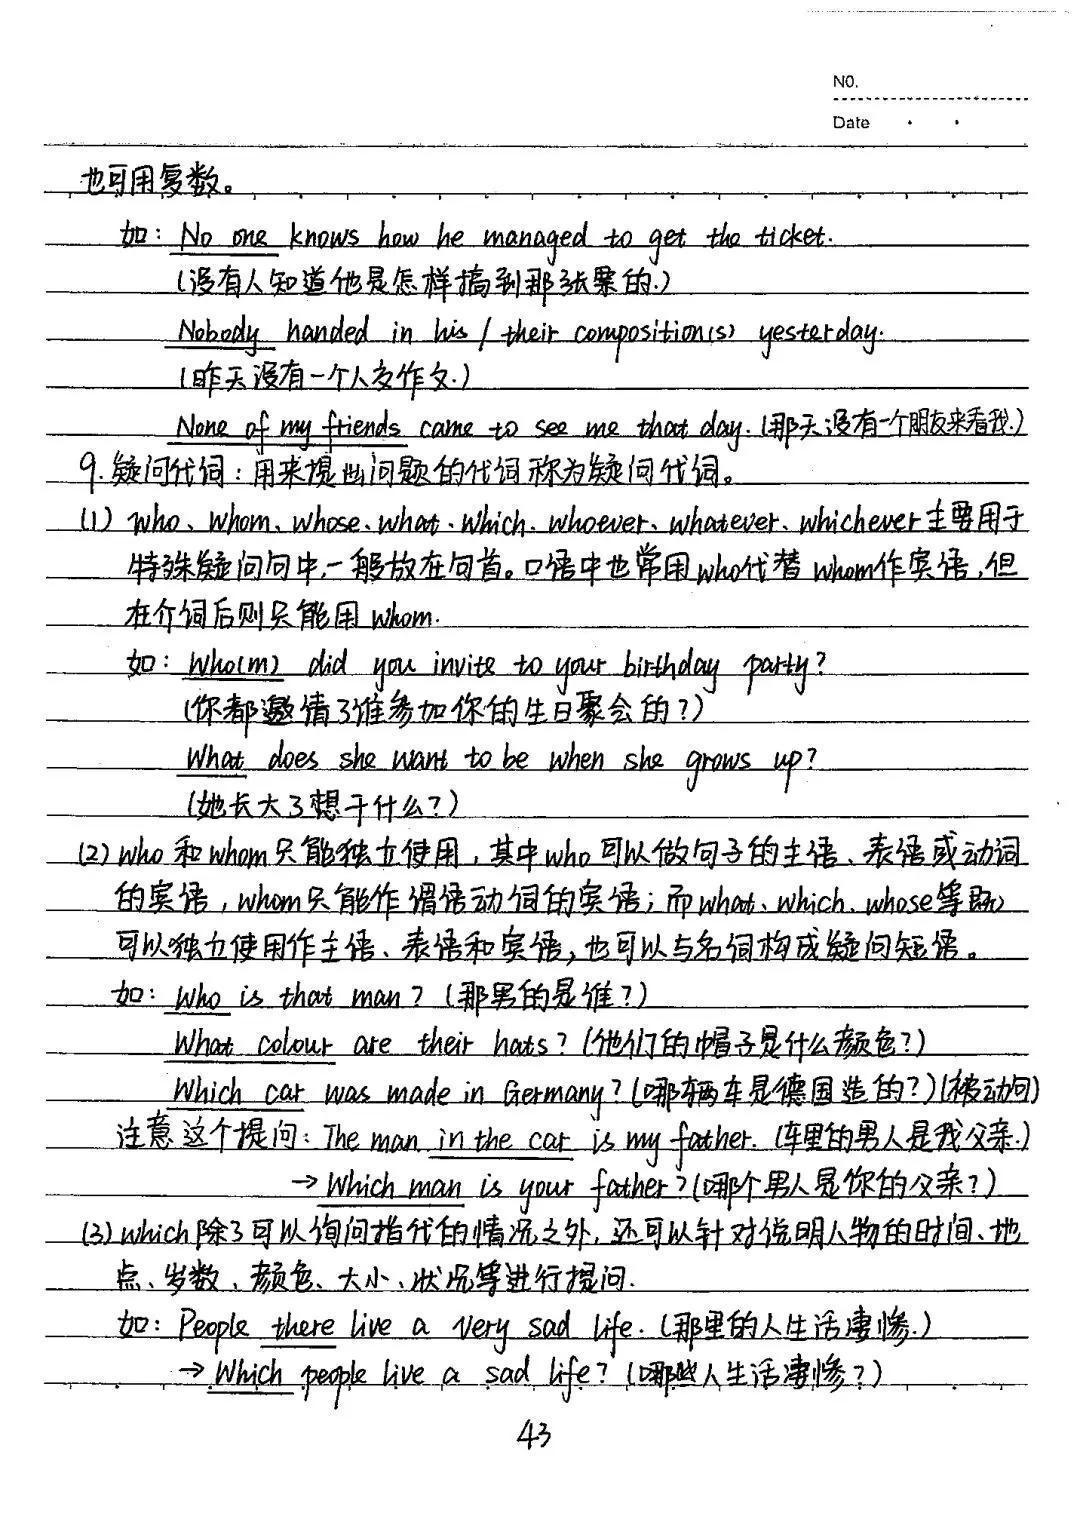 NO.
Date
也可用复数。
如: No one knows how he managed to get the ticket.
(没有人知道他是怎样搞到那张票的.)
Nobody handed in his / their composition(s) yesterday.
(昨天没有一个人交作文.)
None of my friends came to see me that day. (那天没有一个朋友来看我.)
9. 疑问代词: 用来提出问题的代词称为疑问代词。
(1) who、whom、whose、what、which、whoever、whatever、whichever主要用于
特殊疑问句中,一般放在句首。口语中也常用who代替whom作宾语,但
在介词后则只能用whom.
如: Who(m) did you invite to your birthday party?
(你都邀请了谁参加你的生日聚会的?)
What does she want to be when she grows up?
(她长大了想干什么?)
(2) who和whom只能独立使用,其中who可以做句子的主语、表语或动词
的宾语,whom只能作谓语动词的宾语;而what、which、whose等既
可以独立使用作主语、表语和宾语,也可以与名词构成疑问短语。
如: Who is that man? (那男的是谁?)
What colour are their hats? (他们的帽子是什么颜色?)
Which car was made in Germany? (哪辆车是德国造的?)(被动问)
注意这个提问: The man in the car is my father. (车里的男人是我父亲.)
→ Which man is your father? (哪个男人是你的父亲?)
(3) which除了可以询问指代的情况之外,还可以针对说明人物的时间、地
点、岁数、颜色、大小、状况等进行提问.
如: People there live a very sad life. (那里的人生活凄惨.)
→ Which people live a sad life? (哪些人生活凄惨?)
43